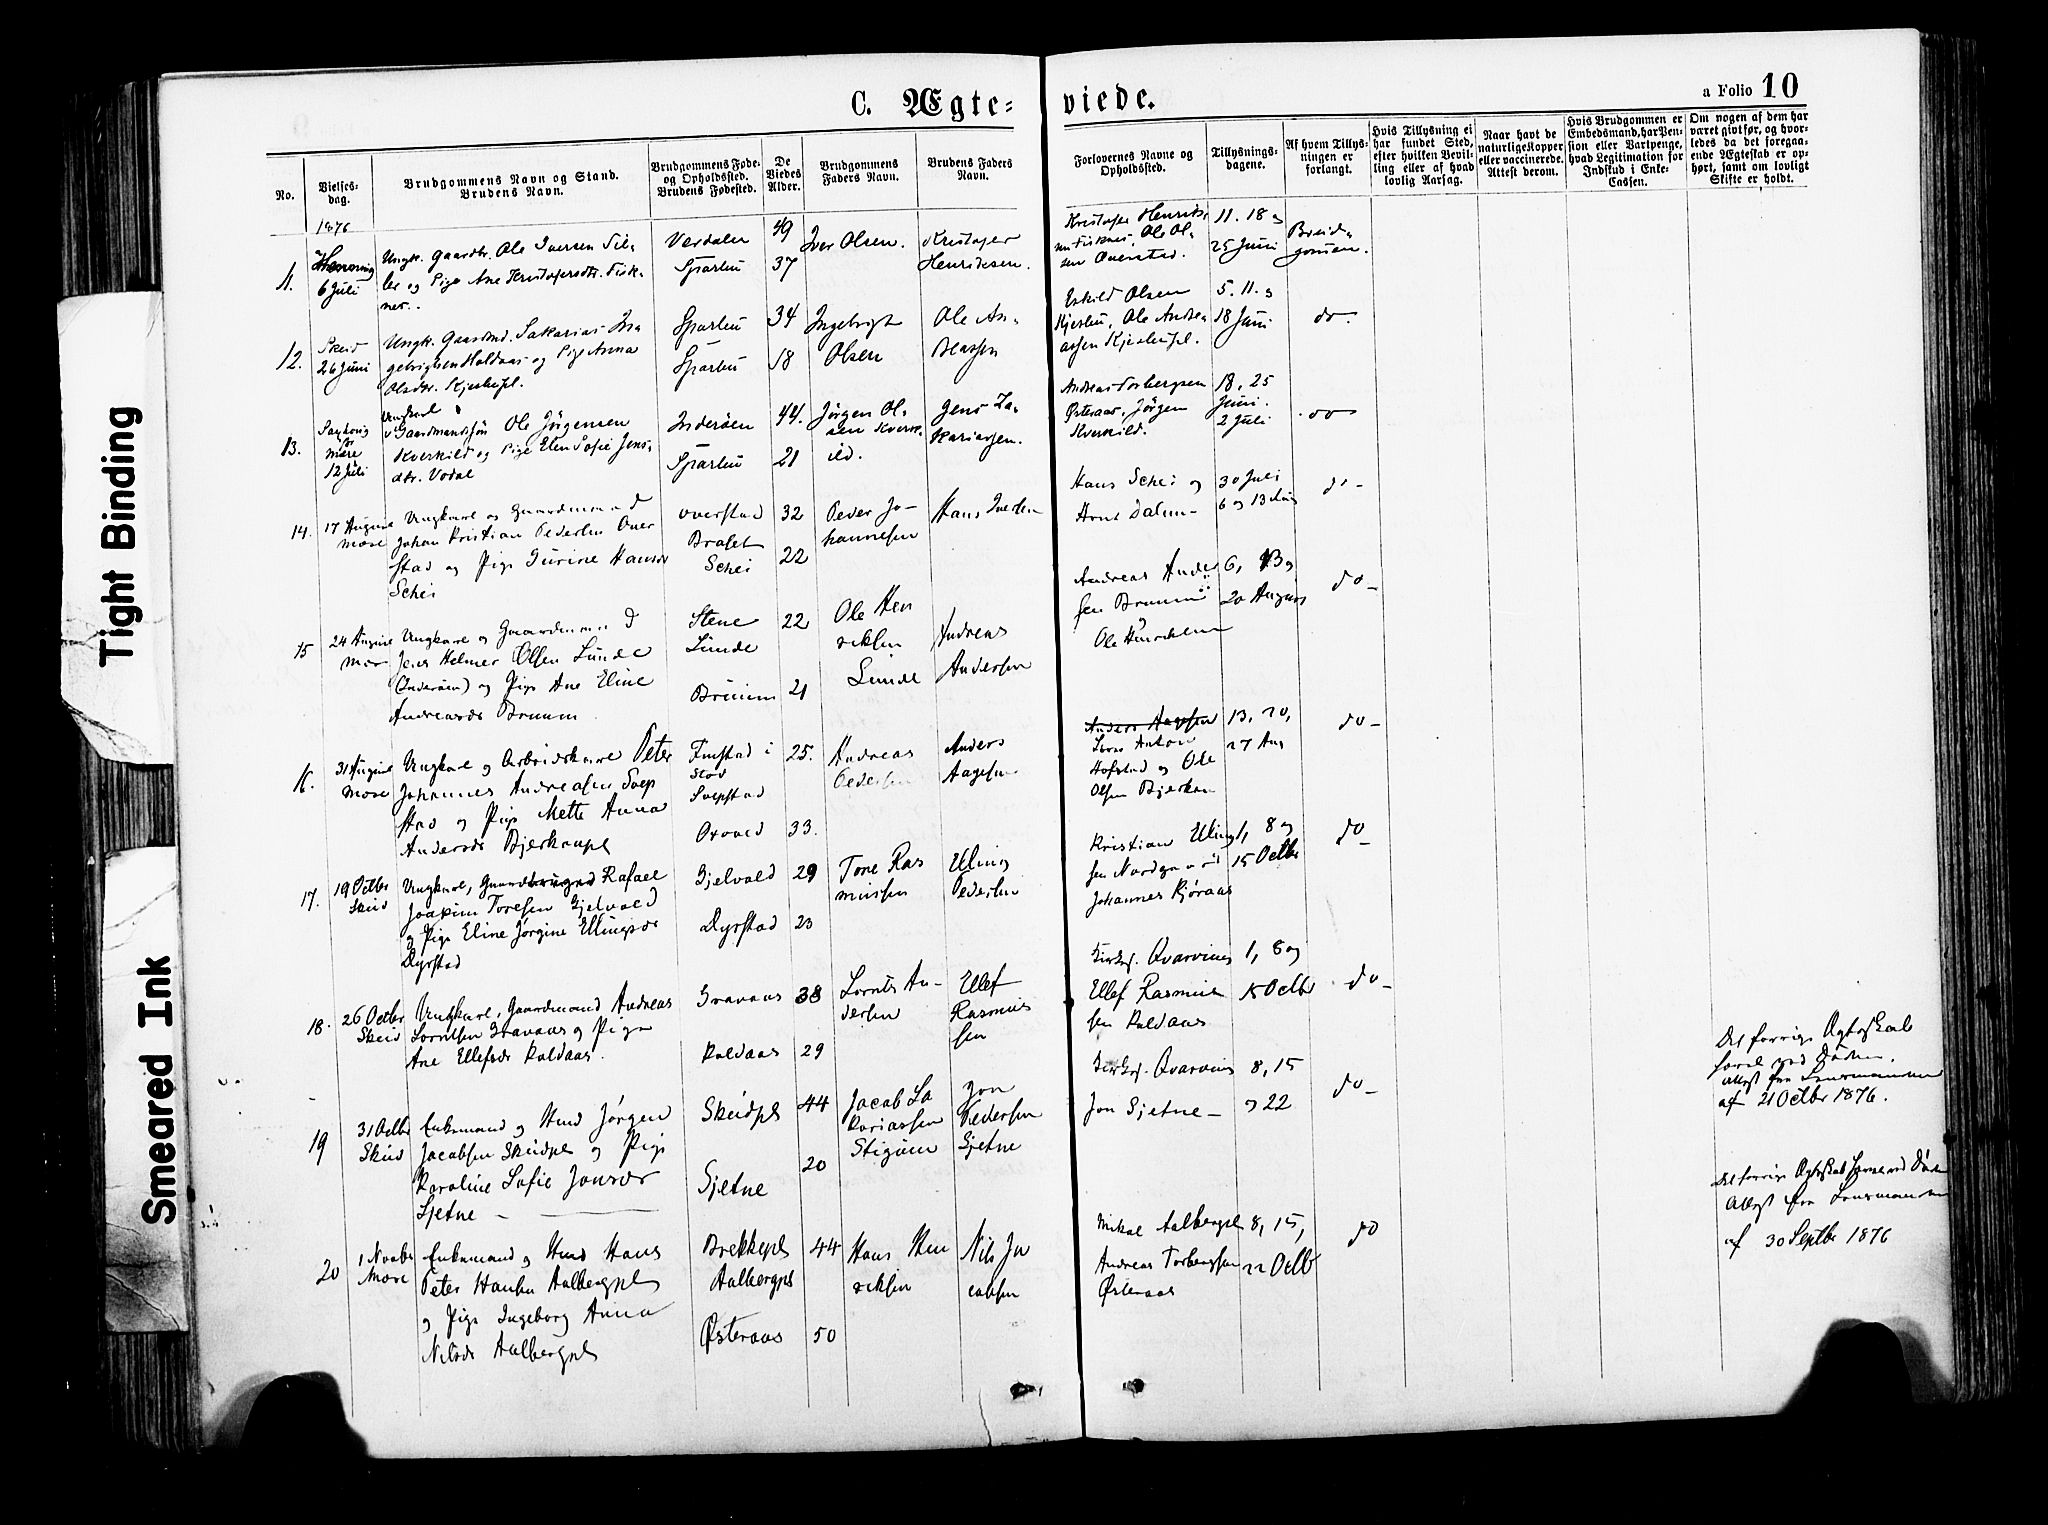 Tight Binding
Smeared Ink
C. Ægte=
viede.
a Folio 10
No.
Vielses-
dag.
Brudgommens Navn og Stand.
Brudens Navn.
Brudgommens Føde-
og Opholdssted.
Brudens Fødested.
De
Viedes
Alder.
Brudgommens
Faders Navn.
Brudens Faders
Navn.
Forlovernes Navne og
Opholdssted.
Tillysnings-
dagene.
Af hvem Tillys-
ningen er
forlangt.
Hvis Tillysning ei
har fundet Sted,
efter hvilken Bevil-
ling eller af hvad
lovlig Aarsag.
Naar havt de
naturlige Kopper
eller vaccinerede.
Attest derom.
Hvis Brudgommen er
Embedsmand, har Pen-
sion eller Vartpenge,
hvad Legitimation for
Indskud i Enke-
Cassen.
Om nogen af dem har
været givtfør, og hvor-
ledes da det foregaa-
ende Ægteskab er op-
hørt, samt om lovligt
Skifte er holdt.
1876
11.
Henning
6 Juli
Ungk. Gaardbr. Ole Iversen
og Pige Ane Kristofersdtr. Fisk-
nes.
Verdalen
Sparbu
49
37
Iver Olsen.
Kristofer
Henriksen.
Kristofer Henrik-
sen Fisknes, Ole Ol-
sen Overstad.
11. 18 og
25 Juni
Brud-
gommen.
12.
Skeid
26 Juni
Ungk. Gaardmd. Sakarias In-
gebrigtsen Holdaas og Pige Anna
Olsdtr. Kjeshpl.
Sparbu
Sparbu
34
18
Ingebrigt
Olsen
Ole An-
dreassen
Eskild Olsen
Ole Andre-
assen
5. 11. og
18 Juni
do.
13.
for
Mære
12 Juli
Ungkarl
Gaardmandssøn Ole Jörgensen
Kverkild og Pige Elen Sofie Jens-
dtr. Vodal
Inderöen
Sparbu
44.
21
Jörgen Ol-
sen Kverk-
ild.
Jens Za-
kariassen.
Andreas Torbergsen
Østeraas, Jörgen
Kverkild.
18, 25
Juni.
2 Juli
do
14.
17 August
Mære
Ungkarl og Gaardmand
Johan Kristian Pedersen Over
stad og Pige Gurine Hansdr
Schei
Overstad
Schei
32
22
Peder Jo-
hannesen
Hans Iversen
Hans Schei og
Arnt Dalum
30 Juli
6 og 13 Aug
do -
15
24 August
Mære
Ungkarl og Gaardmand
Jens Helmer Olsen Lunde
(Inderøen) og Pige Ane Eline
Andreasdr Bruum
Stene
Lunde
Bruum
22
21
Ole Hen
riksen
Lunde
Andreas
Andersen
Andreas Ander
sen Bruum
Ole Henriksen
6, 13 og
20 August
do -
16.
31 August
Mære
Ungkarl og Arbeidskarl Peter
Johannes Andreasen Svep
stad og Pige Mette Anna
Andersdr Bjerkenpl
Finstad i
Stod
Svepstad
Oxvold
25.
33.
Andreas
Pedersen
Anders
Aagesen
Anders Aagesen
Lorns Anton
Hofstad og Ole
Olsen Bjerken
13, 20,
27 Aug
do -
17.
19 Octbr
Skeid
Ungkarl, Gaardbruger Rafael
Joakim Toresen Gjelvold
og Pige Eline Jørgine Ellingsdr
Dyrstad
Gjelvold
Dyrstad
29
23
Tore Ras
mussen
Elling
Pedersen
Kristian Elling
sen Nordgaard
Johannes Kjøraas
1, 8 og
15 Octbr
do
-
18.
26 Octbr
Skeid
Ungkarl, Gaardmand Andreas
Lorntsen Gravaas og Pige
Ane Ellefsdr Kaldaas.
Gravaas
Kaldaas
38
29
Lornts An-
dersen
Ellef
Rasmus
sen
Kirks. Qvarving
Ellef Rasmus
sen Kaldaas
1, 8 og
15 Octbr
do -
19
31 Octbr
Skeid
Enkemand og Husmd Jørgen
Jacobsen Skeidpl og Pige
Karoline Sofie Jonsdr
Gjetne -
Skeidpl
Gjetne
44
20
Jacob Za
kariassen
Stigum
Jon
Pedersen
Gjetne
Kirks. Qvarving
Jon Gjetne -
8, 15
og 22
do -
Det forrige Ægteskab
hævet ved Døden.
Attest fra Lensmanden
af 21 Octbr 1876.
20
1 Novbr
Mære
Enkemand og Husmd Hans
Peter Hansen Aalbergpl
og Pige Ingeborg Anna
Nilsdr Aalbergpl
Brekkepl
Aalbergpl
Østeraas
44
50
Hans Hen
riksen
Nils Ja
cobsen
Mikal Aalbergpl
Andreas Torbergsen
Østeraas
8, 15,
22 Octb
do
Det forrige Ægteskab hævet ved Døden
Attest fra Lensmanden
af 30 Septbr 1876